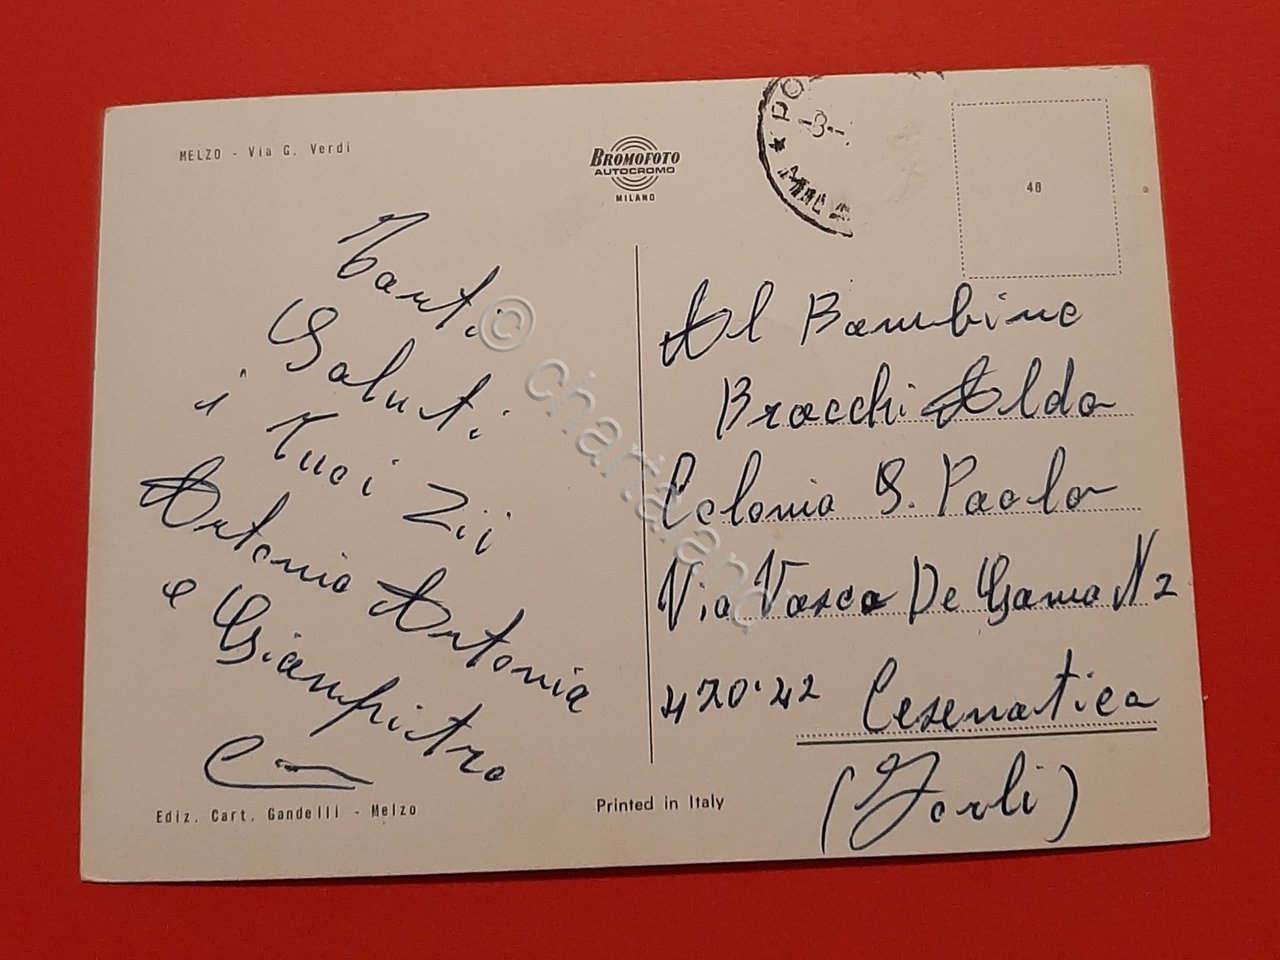 MELZO - Via G. Verdi
BROMOFOTO
AUTOCROMO
MILANO
-8-
40
Tanti
Saluti
i Tuoi Zii
Antonio Antonia
e Giampietro
Al Bambino
Bracchi Aldo
Colonia S. Paolo
Via Vasco De Gama N 2
47042 Cesenatico
(Forli)
Ediz. Cart. Gandelli - Melzo
Printed in Italy
© chartaland